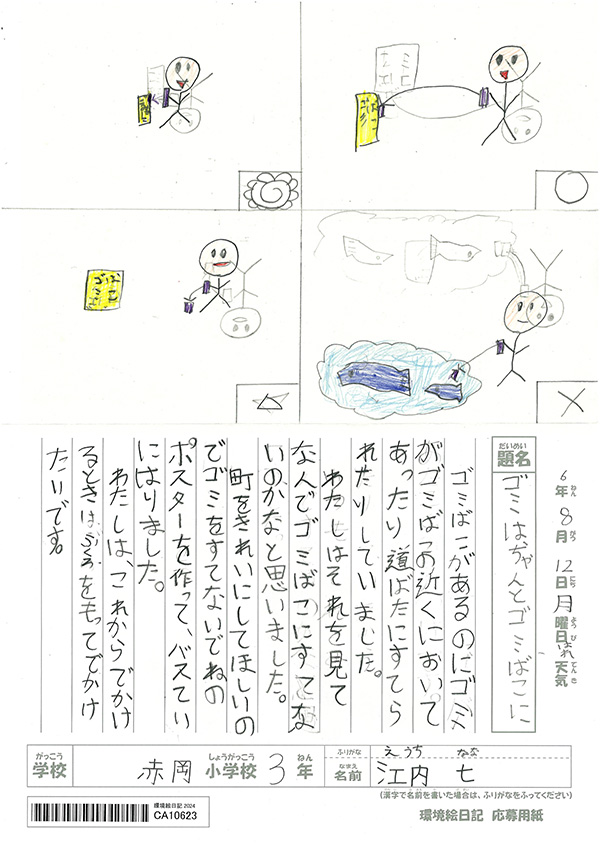 ゴミばこ
ゴミばこ
ゴミばこ
6年8月12日月曜日はれ天気
ねん がつ にち ようび てんき
だいめい
題名
ゴミは、ちゃんとゴミばこに
ゴミばこがあるのにゴミ
がゴミばこの近くにおいて
あったり道ばたにすてら
れたりしていました。
わたしはそれを見て
なんでゴミばこにすてな
いのかなと思いました。
町をきれいにしてほしいの
でゴミをすてないでねの
ポスターを作って、バスてい
にはりました。
わたしは、これからでかけ
るときは、ふくろをもってでかけ
たいです。
がっこう
学校
赤岡
しょうがっこう
小学校
3
ねん
年
ふりがな
えうち なな
なまえ
名前
江内 七
(漢字で名前を書いた場合は、ふりがなをふってください)
環境絵日記 2024
CA10623
環境絵日記 応募用紙